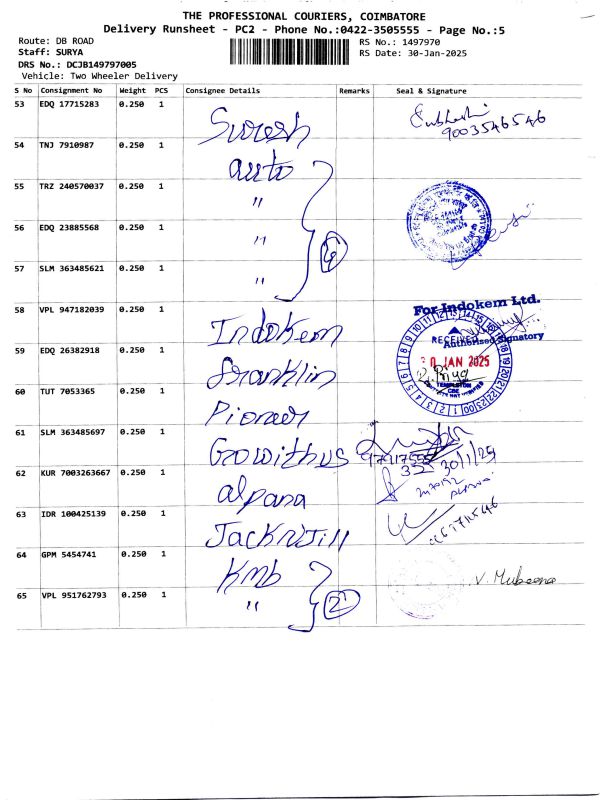 THE PROFESSIONAL COURIERS, COIMBATORE
Delivery Runsheet - PC2 - Phone No.:0422-3505555 - Page No.:5
Route: DB ROAD
RS No.: 1497970
Staff: SURYA
RS Date: 30-Jan-2025
DRS No.: DCJB149797005
Vehicle: Two Wheeler Delivery
S No Consignment No Weight PCS Consignee Details Remarks Seal & Signature
53 EDQ 17715283 0.250 1 Suresh
9003546546
54 TNJ 7910987 0.250 1 auto
55 TRZ 240570037 0.250 1 "
56 EDQ 23885568 0.250 1 "
57 SLM 363485621 0.250 1 " 4
58 VPL 947182039 0.250 1 Indokem
For Indokem Ltd.
Authorised Signatory
RECEIVED
30 JAN 2025
59 EDQ 26382918 0.250 1 Franklin
60 TUT 7053365 0.250 1 Pioneer
61 SLM 363485697 0.250 1 Growithus
30/1/25
62 KUR 7003263667 0.250 1 alpana
63 IDR 100425139 0.250 1 Jack N Jill
64 GPM 5454741 0.250 1 Kmb
V. Mubeena
65 VPL 951762793 0.250 1 " 2